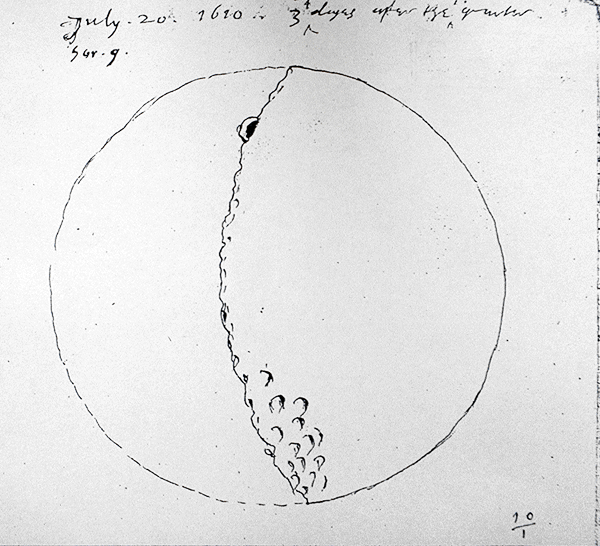 July. 20. 1610. 3 dayes after the 1 quarter
Syr. 9.
10
1